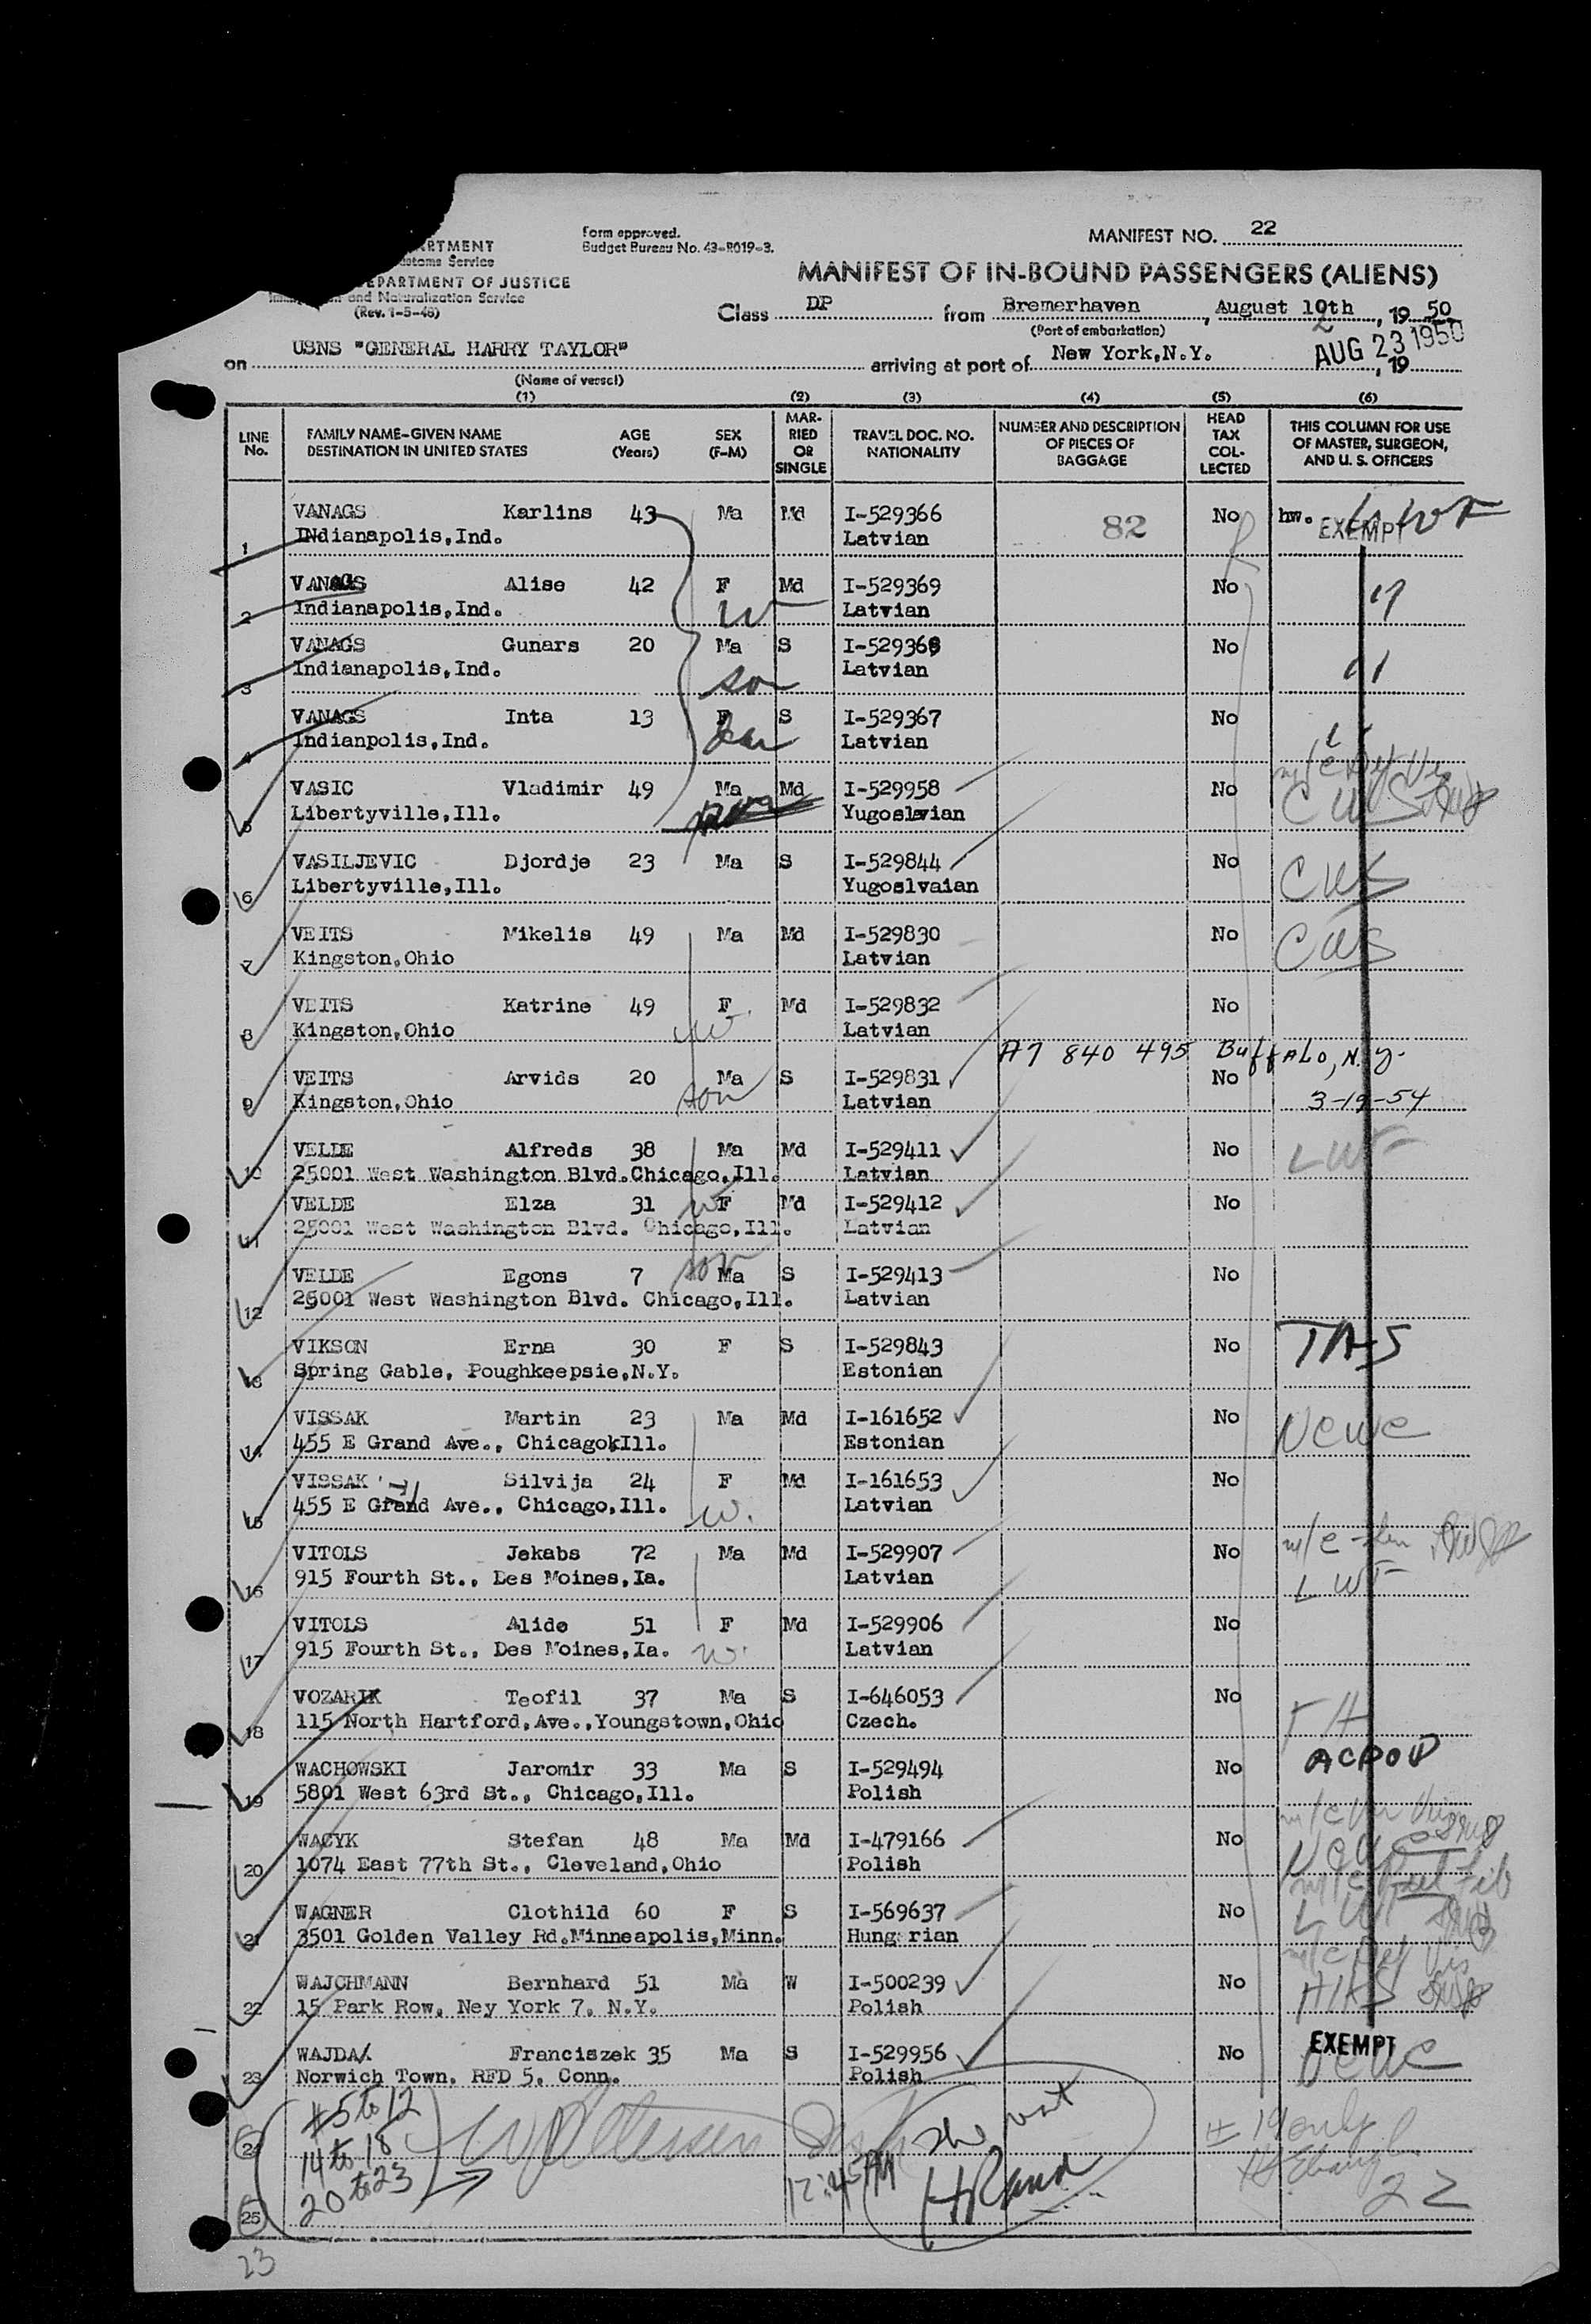 Form approved.
Budget Bureau No. 43-R019-3.
MANIFEST NO. 22
RTMENT
Customs Service
DEPARTMENT OF JUSTICE
and Naturalization Service
(Rev. 1-5-46)
MANIFEST OF IN-BOUND PASSENGERS (ALIENS)
Class DP from Bremerhaven, August 10th, 19 50
(Port of embarkation)
on USNS "GENERAL HARRY TAYLOR" arriving at port of New York,N.Y. AUG 23 1950, 19
(Name of vessel)
(1) (2) (3) (4) (5) (6)
LINE No. FAMILY NAME-GIVEN NAME DESTINATION IN UNITED STATES AGE (Years) SEX (F-M) MARRIED OR SINGLE TRAVEL DOC. NO. NATIONALITY NUMBER AND DESCRIPTION OF PIECES OF BAGGAGE HEAD TAX COLLECTED THIS COLUMN FOR USE OF MASTER, SURGEON, AND U. S. OFFICERS
VANAGS Karlins 43 Ma Md I-529366 82 No hw. LWF
1 INdianapolis,Ind. Latvian EXEMPT
VANAGS Alise 42 F Md I-529369 No "
2 Indianapolis,Ind. W Latvian
VANAGS Gunars 20 Ma S I-529368 No "
3 Indianapolis,Ind. son Latvian
VANAGS Inta 13 F S I-529367 No
4 Indianpolis,Ind. dau Latvian
VASIC Vladimir 49 Ma Md I-529958 No
5 Libertyville,Ill. Yugoslavian CWS
VASILJEVIC Djordje 23 Ma S I-529844 No
6 Libertyville,Ill. Yugoslvaian CWS
VEITS Mikelis 49 Ma Md I-529830 No
7 Kingston,Ohio Latvian CWS
VEITS Katrine 49 F Md I-529832 No
8 Kingston,Ohio W. Latvian
A7 840 495 Buffalo, N.Y.
VEITS Arvids 20 Ma S I-529831 No
9 Kingston,Ohio son Latvian 3-19-54
VELDE Alfreds 38 Ma Md I-529411 No LWF
10 25001 West Washington Blvd.Chicago,Ill. Latvian
VELDE Elza 31 W F Md I-529412 No
11 25001 West Washington Blvd. Chicago,Ill. Latvian
VELDE Egons 7 son Ma S I-529413 No
12 25001 West Washington Blvd. Chicago,Ill. Latvian
VIKSON Erna 30 F S I-529843 No TAS
13 Spring Gable, Poughkeepsie,N.Y. Estonian
VISSAK Martin 23 Ma Md I-161652 No
14 455 E Grand Ave., ChicagokIll. Estonian NCWC
VISSAK Silvija 24 F Md I-161653 No
15 455 E Grand Ave., Chicago,Ill. W. Latvian
VITOLS Jekabs 72 Ma Md I-529907 No
16 915 Fourth St., Des Moines,Ia. Latvian LWF
VITOLS Alide 51 F Md I-529906 No
17 915 Fourth St., Des Moines,Ia. W. Latvian
VOZARIK Teofil 37 Ma S I-646053 No
18 115 North Hartford,Ave.,Youngstown,Ohio Czech.
WACHOWSKI Jaromir 33 Ma S I-529494 No
19 5801 West 63rd St., Chicago,Ill. Polish
WACYK Stefan 48 Ma Md I-479166 No
20 1074 East 77th St., Cleveland,Ohio Polish
WAGNER Clothild 60 F S I-569637 No LWF
21 3501 Golden Valley Rd.Minneapolis,Minn. Hungarian
WAJCHMANN Bernhard 51 Ma W I-500239 No
22 15 Park Row, Ney York 7, N.Y. Polish HIAS
WAJDA Franciszek 35 Ma S I-529956 No EXEMPT
23 Norwich Town, RFD 5, Conn. Polish NCWC
#5 to 12
24 14 to 18 19 only
20 to 23 12:45 PM
25 22
23